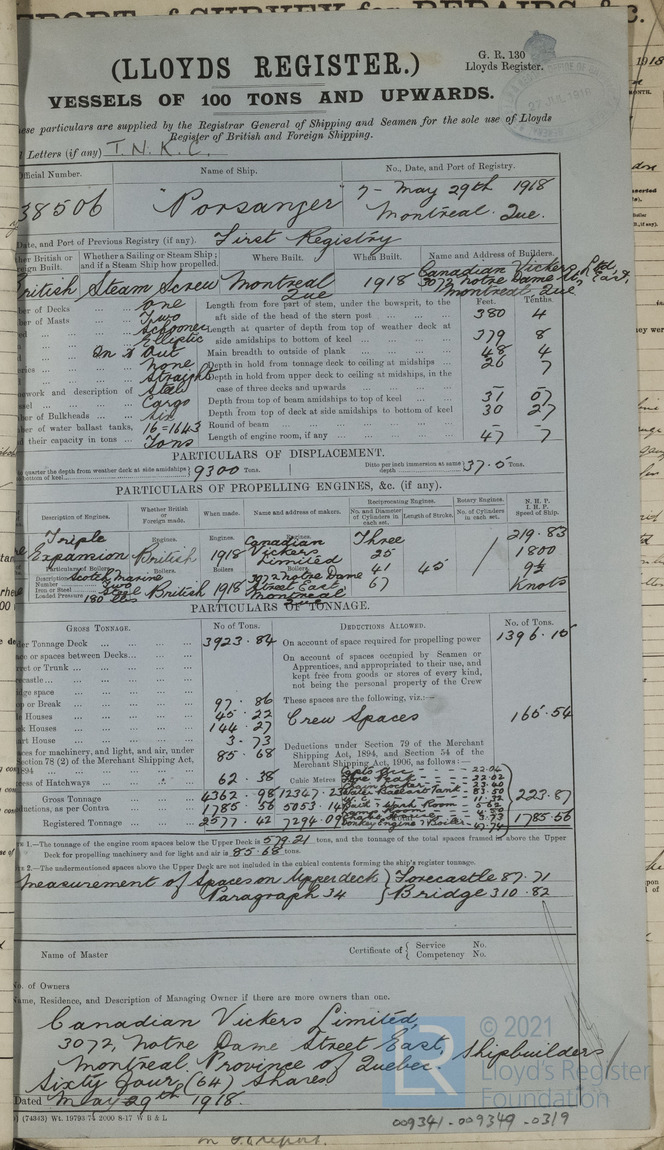 PORT of SURVEY for REPAIRS, &c.
G. R. 130
Lloyds Register.
(LLOYDS REGISTER.)
VESSELS OF 100 TONS AND UPWARDS.
ese particulars are supplied by the Registrar General of Shipping and Seamen for the sole use of Lloyds
Register of British and Foreign Shipping.
Letters (if any) T.N.K.C.
fficial Number. Name of Ship. No., Date, and Port of Registry.
38506 "Porsanger" 7 - May 29th 1918
Montreal. Que.
Date, and Port of Previous Registry (if any). First Registry
her British or
reign Built. Whether a Sailing or Steam Ship; and if a Steam Ship how propelled. Where Built. When Built. Name and Address of Builders.
British Steam Screw Montreal Que 1918 Canadian Vickers Ltd,
3072 Notre Dame St. East,
Montreal Que
Feet. Tenths.
ber of Decks One Length from fore part of stem, under the bowsprit, to the
ber of Masts Two aft side of the head of the stern post 380 4
Schooner Length at quarter of depth from top of weather deck at
Elliptic side amidships to bottom of keel 379 8
In & Out Main breadth to outside of plank 48 4
None Depth in hold from tonnage deck to ceiling at midships 26 7
Straight Depth in hold from upper deck to ceiling at midships, in the
ework and description of Steel case of three decks and upwards – –
Cargo Depth from top of beam amidships to top of keel 31 07
ber of Bulkheads Six Depth from top of deck at side amidships to bottom of keel 30 27
ber of water ballast tanks, 16=1643 Round of beam – –
d their capacity in tons Tons Length of engine room, if any 47 7
PARTICULARS OF DISPLACEMENT.
quarter the depth from weather deck at side amidships
bottom of keel 9300 Tons. Ditto per inch immersion at same depth 37.5 Tons.
PARTICULARS OF PROPELLING ENGINES, &c. (if any).
Description of Engines. Whether British or Foreign made. When made. Name and address of makers. Reciprocating Engines. Rotary Engines. N. H. P.
No. and Diameter of Cylinders in each set. Length of Stroke. No. of Cylinders in each set. I. H. P.
Speed of Ship.
Triple Engines. Engines. Canadian Three 219.83
Expansion British 1918 Vickers 25 1800
Limited 41 45 9½
Particulars of Boilers. Boilers. Boilers. Boilers. Knots
Description Scotch Marine 3072 Notre Dame 67
Number Two Street East
Iron or Steel Steel British 1918 Montreal
Loaded Pressure 180 lbs Que
PARTICULARS OF TONNAGE.
GROSS TONNAGE. No. of Tons. DEDUCTIONS ALLOWED. No. of Tons.
der Tonnage Deck 3923.84 On account of space required for propelling power 1396.15
ace or spaces between Decks
rret or Trunk
recastle
idge space
op or Break 97.86
le Houses 45.22
ck Houses 144.27
art House 3.73
aces for machinery, and light, and air, under
Section 78 (2) of the Merchant Shipping Act,
1894 85.68
cess of Hatchways 62.38
On account of spaces occupied by Seamen or
Apprentices, and appropriated to their use, and
kept free from goods or stores of every kind,
not being the personal property of the Crew
These spaces are the following, viz.:—
Crew Spaces 165.54
Deductions under Section 79 of the Merchant
Shipping Act, 1894, and Section 54 of the
Merchant Shipping Act, 1906, as follows:—
Cubic Metres
Gross Tonnage 4362.98 12347.23
uctions, as per Contra 1785.56 5053.14
Registered Tonnage 2577.42 7294.09
Water Ballast Tank
Donkey Engine & Boiler 47.74
223.87
1785.56
TE 1.—The tonnage of the engine room spaces below the Upper Deck is 579.21 tons, and the tonnage of the total spaces framed in above the Upper
Deck for propelling machinery and for light and air is 85.68 tons.
TE 2.—The undermentioned spaces above the Upper Deck are not included in the cubical contents forming the ship's register tonnage.
Measurement of Spaces on Upper deck } Forecastle 87.71
Paragraph 34 } Bridge 310.82
Name of Master Certificate of { Service No.
Competency No.
No. of Owners
Name, Residence, and Description of Managing Owner if there are more owners than one.
Canadian Vickers Limited,
3072, Notre Dame Street East, Shipbuilders
Montreal Province of Quebec.
Sixty four (64) Shares
Dated May 29th 1918.
(74343) Wt. 19793/74 2000 8-17 W B & L
009341-009349-0319
LR © 2021
Lloyd's Register
Foundation